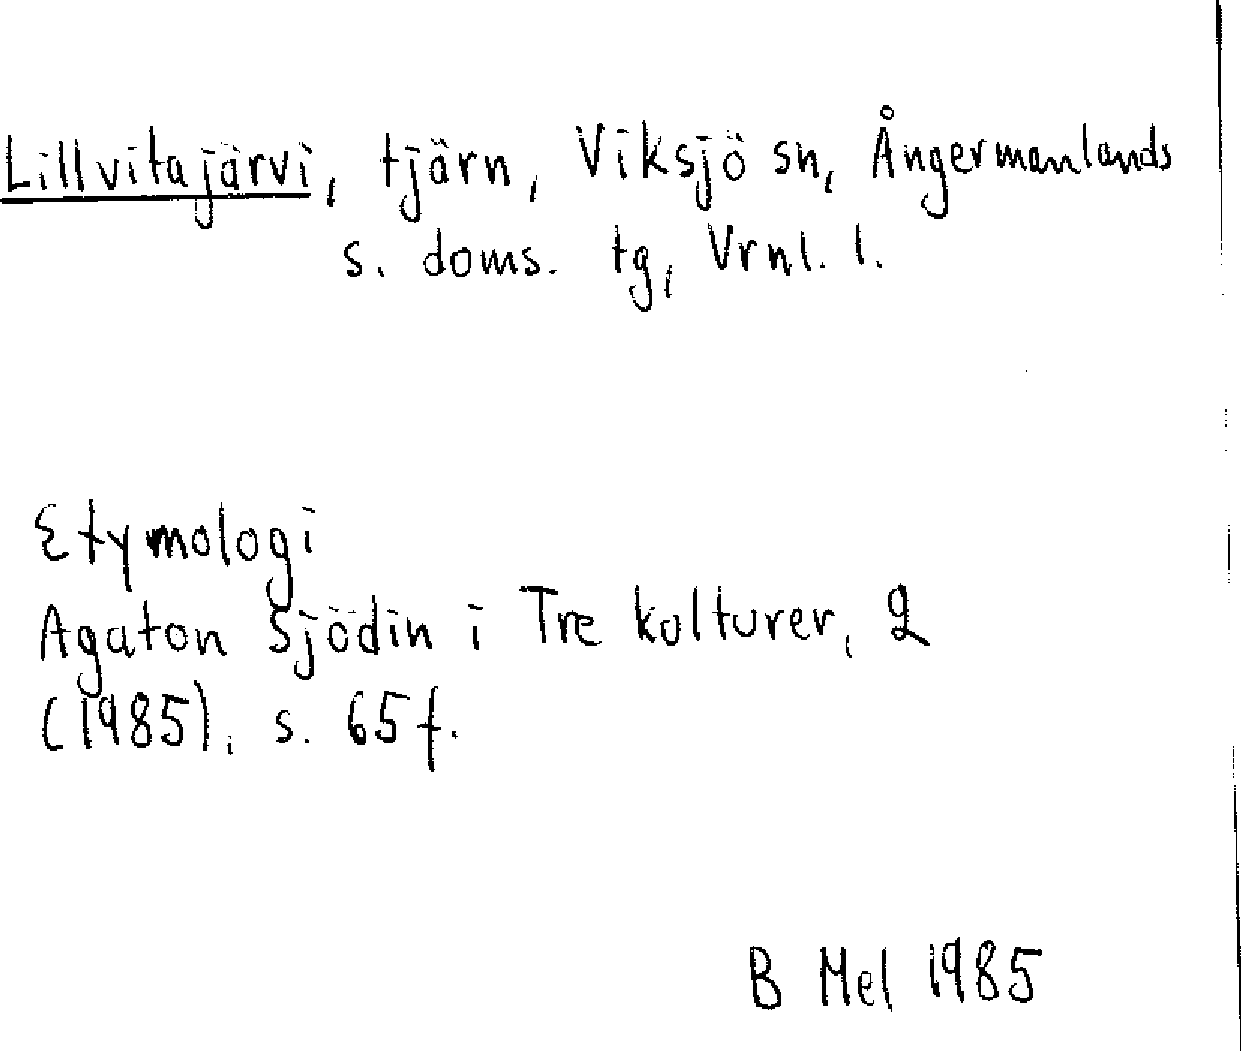 Lillvitajärvi, tjärn, Viksjö sn, Ångermanlands
s. doms. tg, Vrnl. l.
Etymologi
Agaton Sjödin i Tre kulturer, 2
(1985), s. 65 f.
B Mel 1985